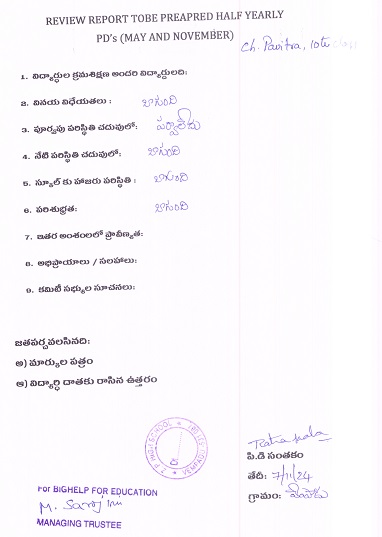 REVIEW REPORT TOBE PREAPRED HALF YEARLY
PD's (MAY AND NOVEMBER)
Ch. Pavitra, 10th class
1. విద్యార్థుల క్రమశిక్షణ అందరి విద్యార్థులది:
2. వినయ విధేయతలు : బాగుంది
3. పూర్వపు పరిస్థితి చదువులో: పర్వాలేదు
4. నేటి పరిస్థితి చదువులో: బాగుంది
5. స్కూల్ కు హాజరు పరిస్థితి : బాగుంది
6. పరిశుభ్రత: బాగుంది
7. ఇతర అంశంలలో ప్రావీణ్యత:
8. అభిప్రాయాలు / సలహాలు:
9. కమిటీ సభ్యుల సూచనలు:
జతపర్చవలసినది:
అ) మార్కుల పత్రం
ఆ) విద్యార్థి దాతకు రాసిన ఉత్తరం
Z P HIGH SCHOOL
VEMPADU
పి.డి సంతకం
తేదీ: 7/11/24
గ్రామం: వేంపాడు
For BIGHELP FOR EDUCATION
MANAGING TRUSTEE